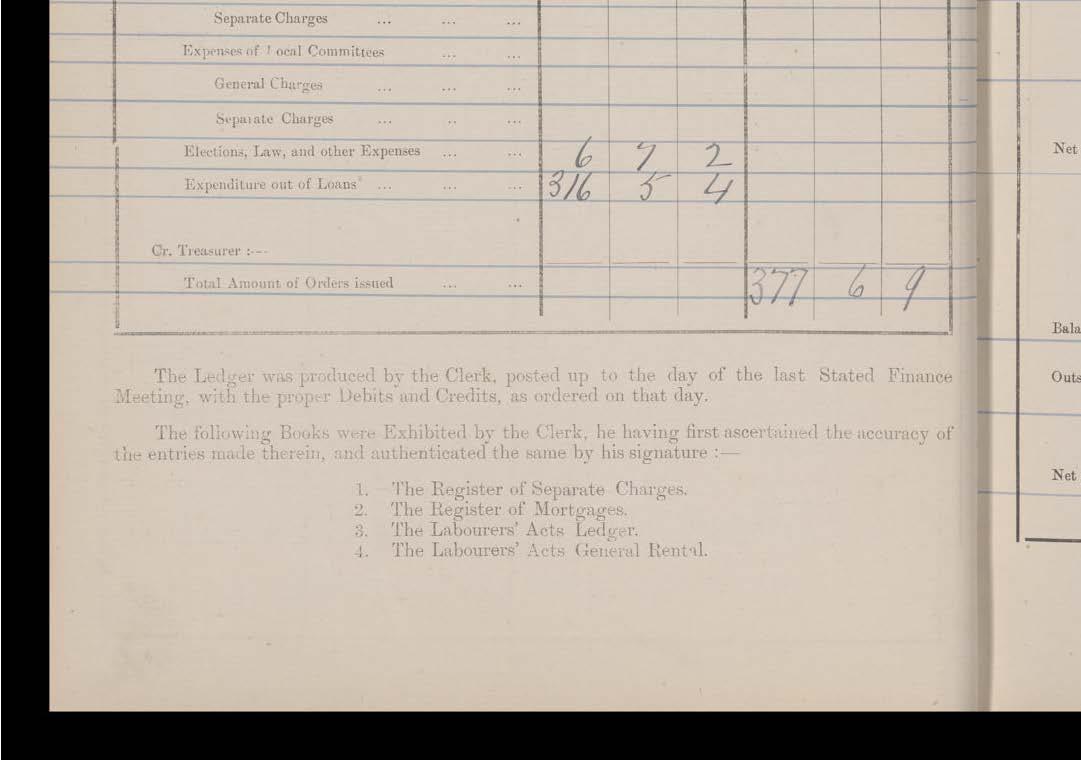 Separate Charges ... ... ...
Expenses of Local Committees ... ...
General Charges ... ... ...
Separate Charges ... .. ...
Elections, Law, and other Expenses ... ... 6 7 2
Expenditure out of Loans ... ... ... 316 5 4
Cr. Treasurer :---
Total Amount of Orders issued ... ... 377 6 9
The Ledger was produced by the Clerk, posted up to the day of the last Stated Finance
Meeting, with the proper Debits and Credits, as ordered on that day.
The following Books were Exhibited by the Clerk, he having first ascertained the accuracy of
the entries made therein, and authenticated the same by his signature :—
1. The Register of Separate Charges.
2. The Register of Mortgages.
3. The Labourers' Acts Ledger.
4. The Labourers' Acts General Rental.
Net
Bala
Outs
Net